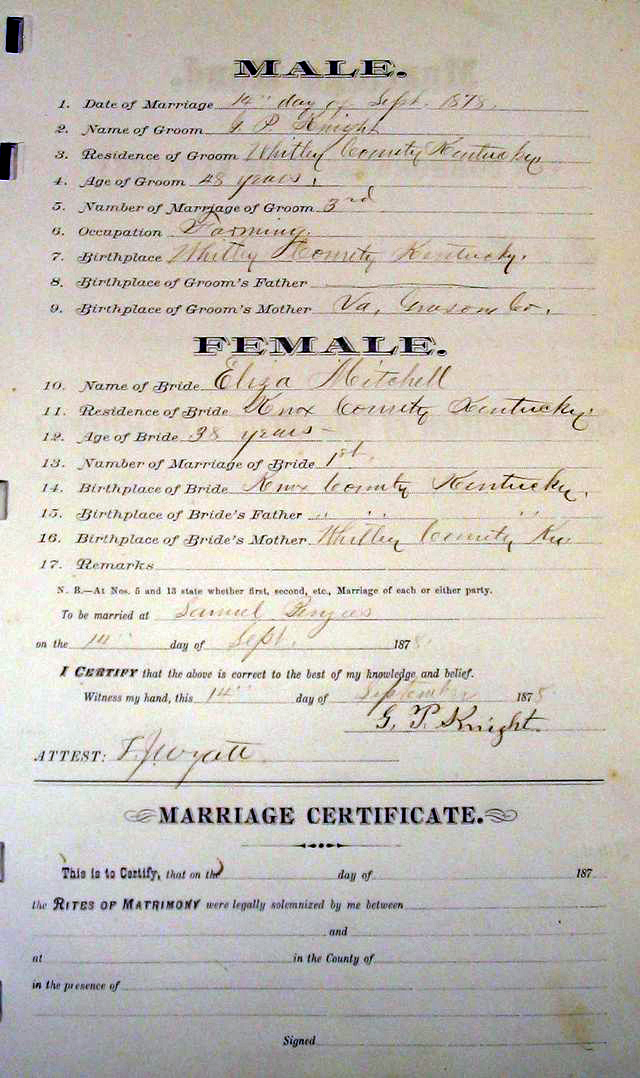 MALE.
1. Date of Marriage 14" day of Sept. 1878.
2. Name of Groom G. P. Knight
3. Residence of Groom Whitley County Kentucky
4. Age of Groom 48 years.
5. Number of Marriage of Groom 3rd
6. Occupation Farming.
7. Birthplace Whitley County Kentucky.
8. Birthplace of Groom's Father
9. Birthplace of Groom's Mother Va, Co.
FEMALE.
10. Name of Bride Eliza Mitchell
11. Residence of Bride Knox County Kentucky.
12. Age of Bride 38 years -
13. Number of Marriage of Bride 1st.
14. Birthplace of Bride Knox County Kentucky.
15. Birthplace of Bride's Father " " "
16. Birthplace of Bride's Mother Whitley County Ky.
17. Remarks
N. B.—At Nos. 5 and 13 state whether first, second, etc., Marriage of each or either party.
To be married at Samuel
on the 14" day of Sept. 1878.
I CERTIFY that the above is correct to the best of my knowledge and belief.
Witness my hand, this 14" day of September 1878
G. P. Knight.
ATTEST: Wyatt
MARRIAGE CERTIFICATE.
This is to Certify, that on the day of 187
the RITES OF MATRIMONY were legally solemnized by me between
and
at in the County of
in the presence of
Signed